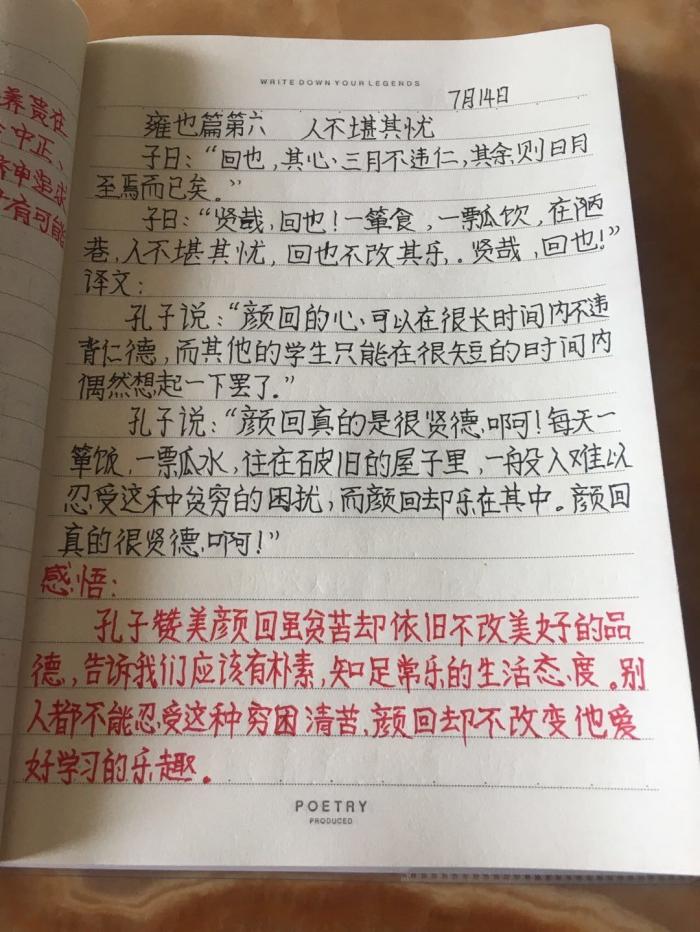 养贵在
中正、
求
有可能
WRITE DOWN YOUR LEGENDS
7月14日
雍也篇第六 人不堪其忧
子曰：“回也，其心三月不违仁，其余则日月
至焉而已矣。”
子曰：“贤哉，回也！一箪食，一瓢饮，在陋
巷，人不堪其忧，回也不改其乐。贤哉，回也！”
译文：
孔子说：“颜回的心可以在很长时间内不违
背仁德，而其他的学生只能在很短的时间内
偶然想起一下罢了。”
孔子说：“颜回真的是很贤德啊！每天一
箪饭，一瓢水，住在破旧的屋子里，一般人难以
忍受这种贫穷的困扰，而颜回却乐在其中。颜回
真的很贤德啊！”
感悟：
孔子赞美颜回虽贫苦却依旧不改美好的品
德，告诉我们应该有朴素，知足常乐的生活态度。别
人都不能忍受这种穷困清苦，颜回却不改变他爱
好学习的乐趣。
POETRY
PRODUCED